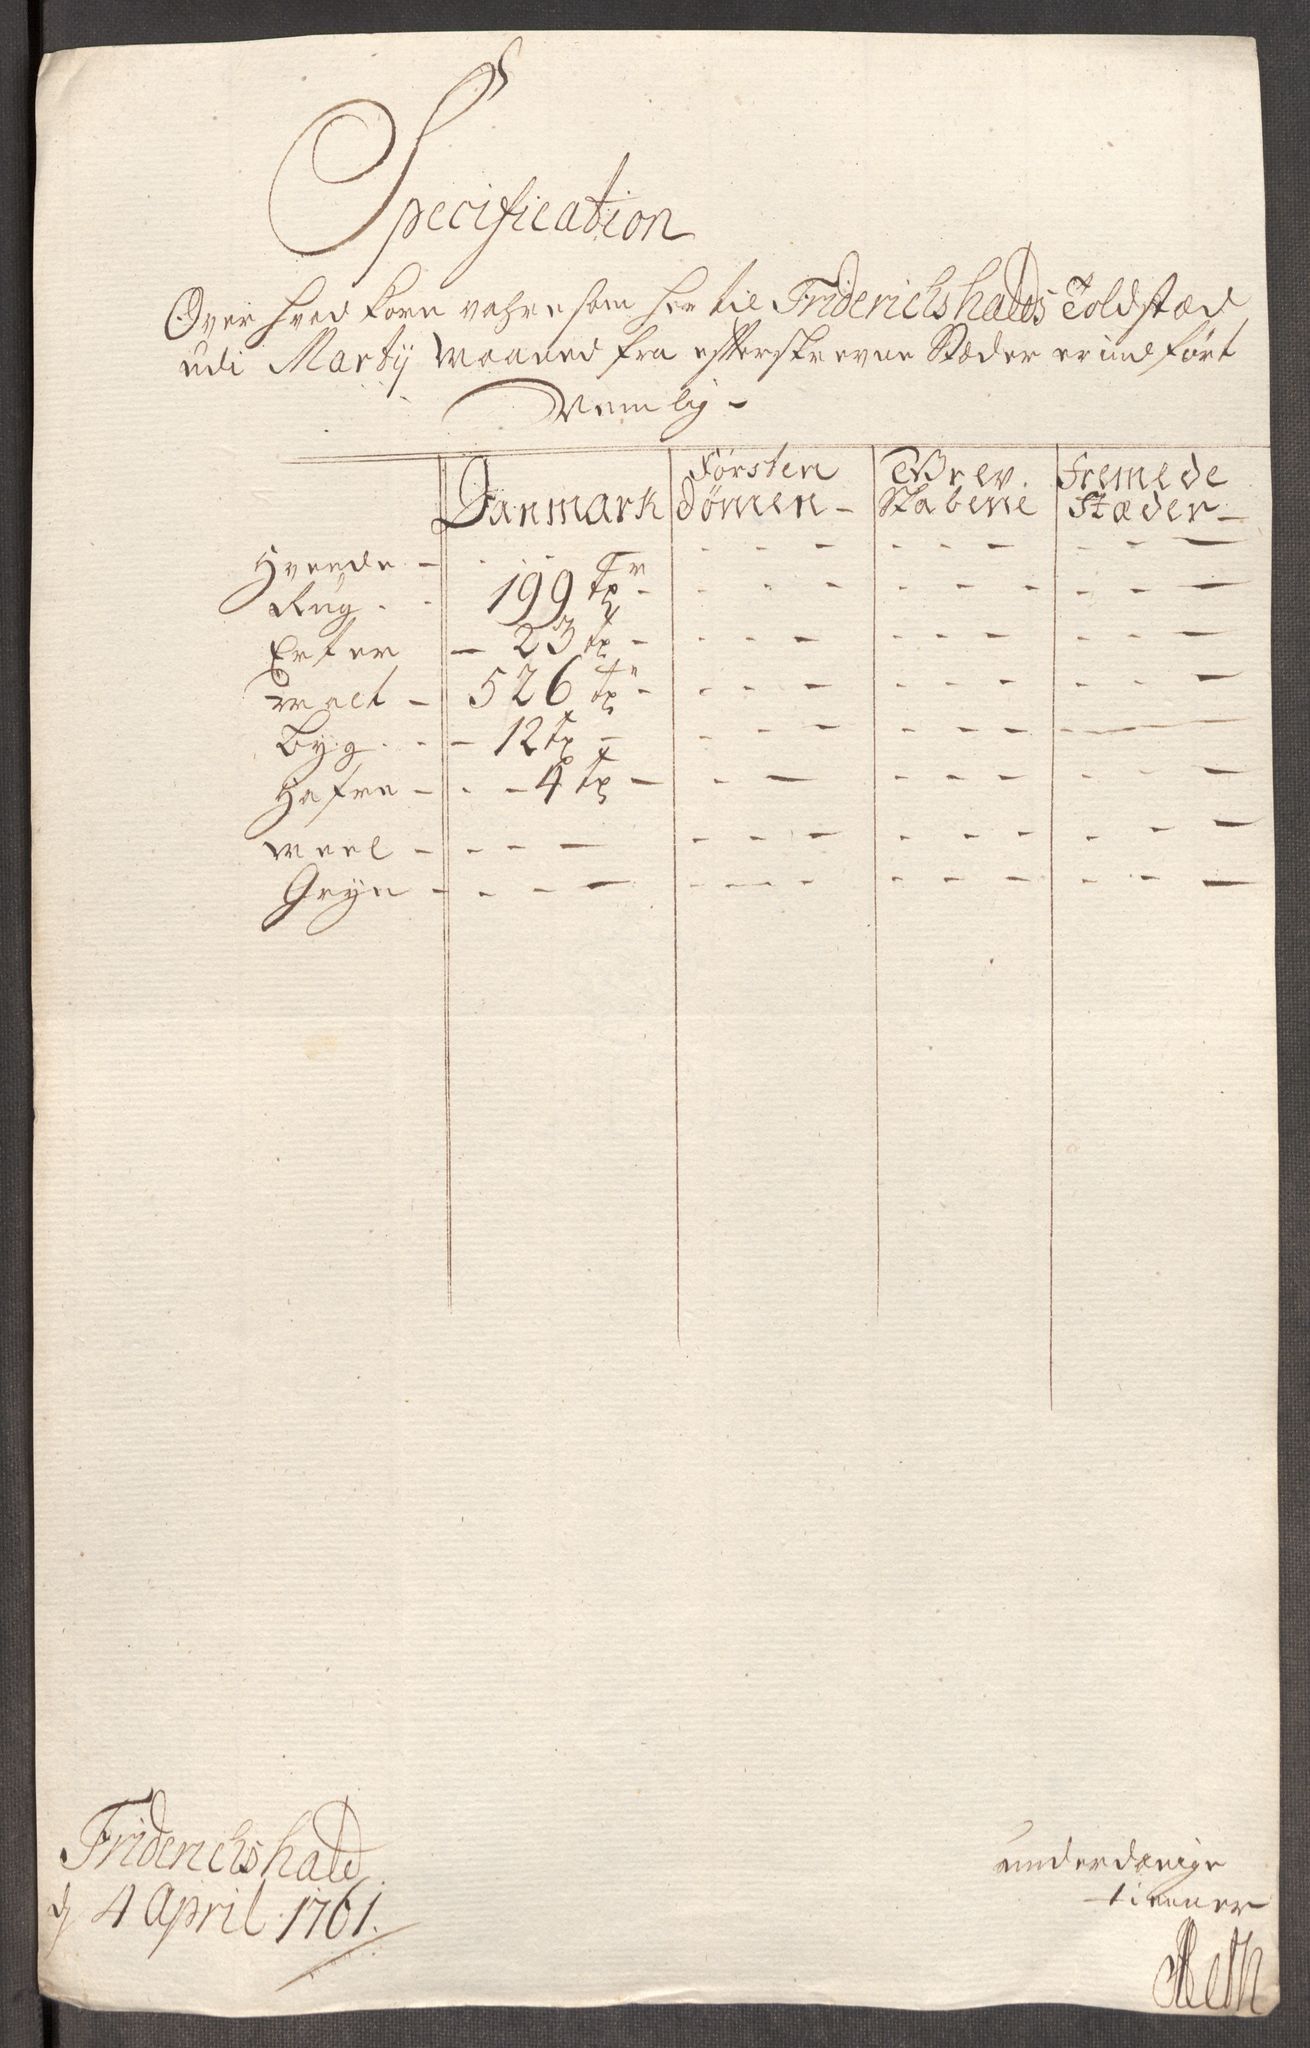 Specification
Over hved Korn vahre som her til Friderichshalds Toldstæd
udi Marty Maaned fra efterskrevne Stæder er indført
Nemlig -
Danmark Førsten Dømen - Grev. Skabene Fremede Stæder -
Hvede - - - - - - - - - -
Rug - - 199 Tr - - - - - - - - -
Erter - 23 Tr - - - - - - - - -
Malt - 526 Tr - - - - - - - - -
Byg - - 12 Tr - - - - - - - -
Hafre - - - 4 Tr - - - - - - - - -
Meel - - - - - - - - - - - - -
Gryn - - - - - - - - - - - - -
Friderichshald
d 4 April 1761.
underdanige
tienner